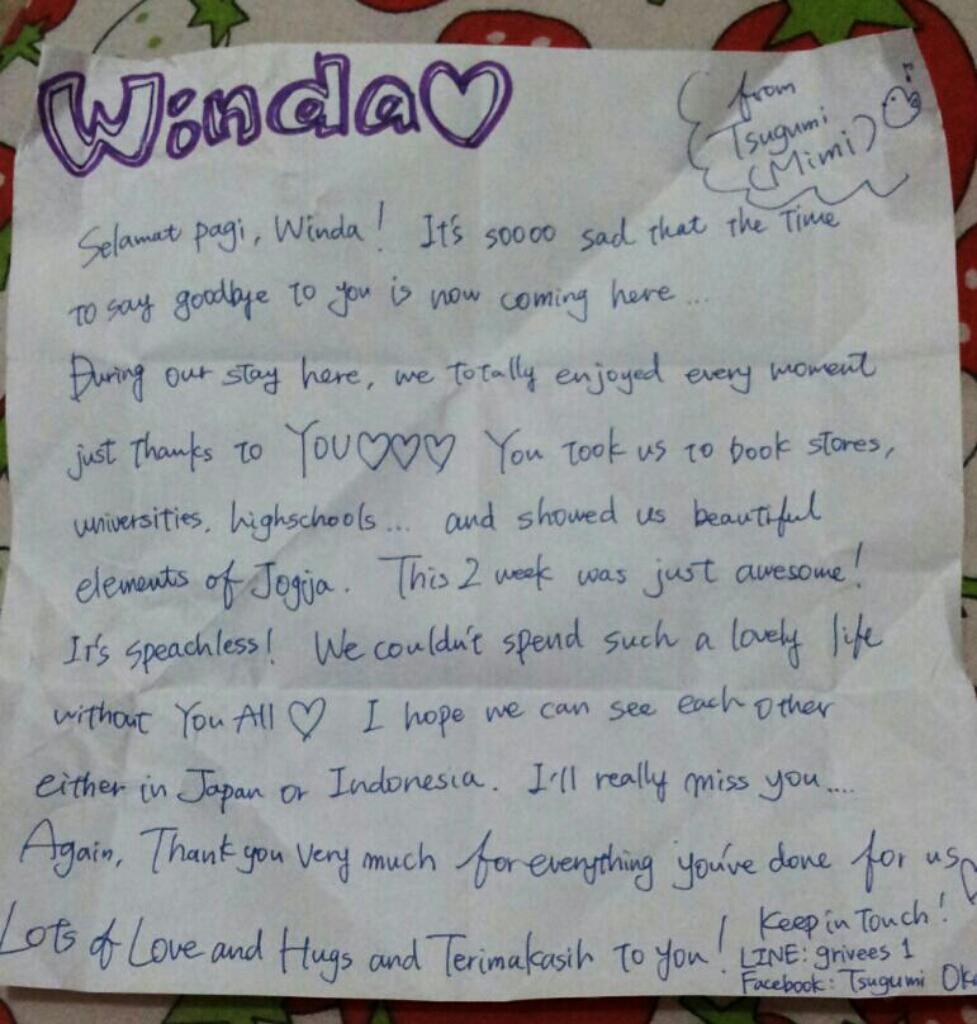 Winda♡
from
Tsugumi
(Mimi)
Selamat pagi, Winda! It's soooo sad that the Time
to say goodbye to you is now coming here...
During our stay here, we totally enjoyed every moment
just thanks to YOU♡♡♡ You took us to book stores,
universities, highschools... and showed us beautiful
elements of Jogja. This 2 week was just awesome!
It's speachless! We couldn't spend such a lovely life
without You All♡ I hope we can see each other
either in Japan or Indonesia. I'll really miss you....
Again, Thank you very much for everything you've done for us♡
Lots of Love and Hugs and Terimakasih to you!
Keep in Touch!
LINE: grivees 1
Facebook: Tsugumi